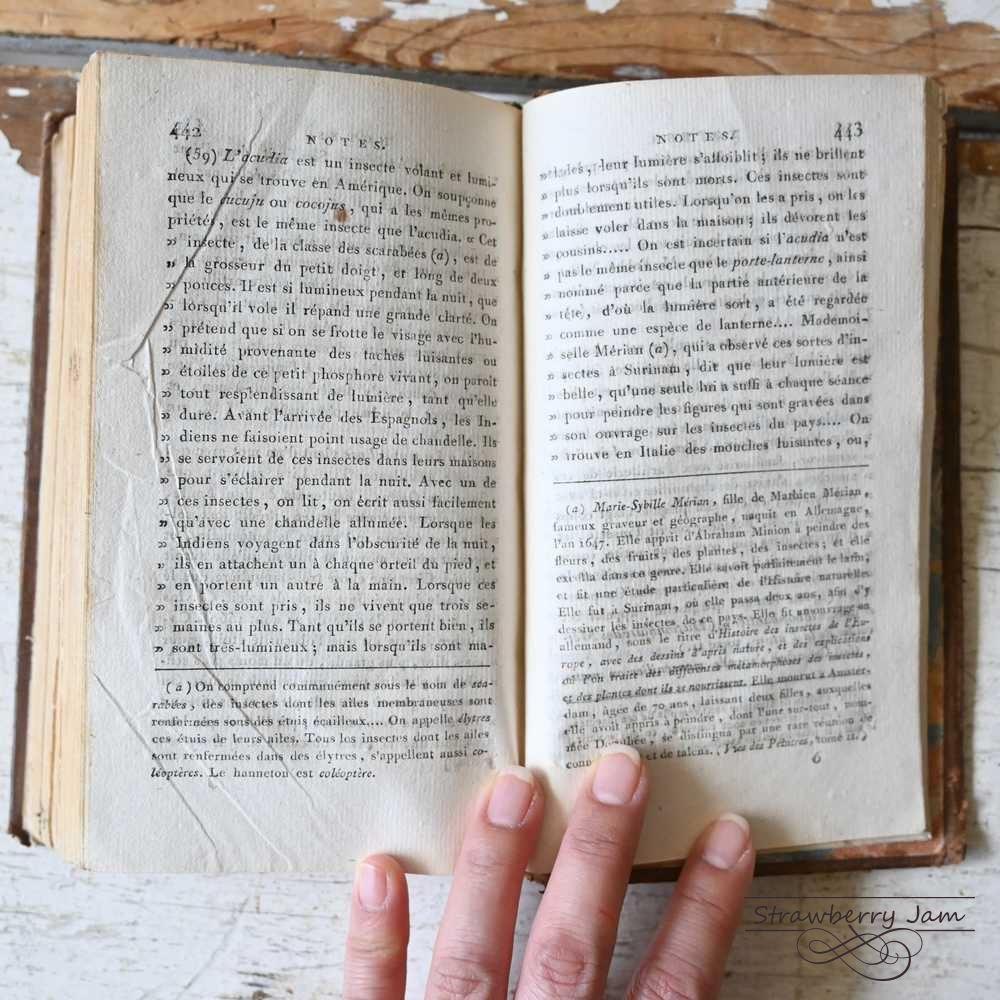 442
NOTES.
(59) L'acudia est un insecte volant et lumi-
neux qui se trouve en Amérique. On soupçonne
que le cucuju ou cocojus, qui a les mêmes pro-
priétés, est le même insecte que l'acudia. « Cet
» insecte, de la classe des scarabées (a), est de
» la grosseur du petit doigt, et long de deux
» pouces. Il est si lumineux pendant la nuit, que
» lorsqu'il vole il répand une grande clarté. On
» prétend que si on se frotte le visage avec l'hu-
» midité provenante des taches luisantes ou
» étoiles de ce petit phosphore vivant, on paroît
» tout resplendissant de lumière, tant qu'elle
» dure. Avant l'arrivée des Espagnols, les In-
» diens ne faisoient point usage de chandelle. Ils
» se servoient de ces insectes dans leurs maisons
» pour s'éclairer pendant la nuit. Avec un de
» ces insectes, on lit, on écrit aussi facilement
» qu'avec une chandelle allumée. Lorsque les
» Indiens voyagent dans l'obscurité de la nuit,
» ils en attachent un à chaque orteil du pied, et
» en portent un autre à la main. Lorsque ces
» insectes sont pris, ils ne vivent que trois se-
» maines au plus. Tant qu'ils se portent bien, ils
» sont très-lumineux; mais lorsqu'ils sont ma-
(a) On comprend communément sous le nom de sca-
rabées, des insectes dont les ailes membraneuses sont
renfermées sous des étuis écailleux.... On appelle élytres
ces étuis de leurs ailes. Tous les insectes dont les ailes
sont renfermées dans des élytres, s'appellent aussi co-
léoptères. Le hanneton est coléoptère.
NOTES.
443
» lades, leur lumière s'affoiblit; ils ne brillent
» plus lorsqu'ils sont morts. Ces insectes sont
» doublement utiles. Lorsqu'on les a pris, on les
» laisse voler dans la maison; ils dévorent les
» cousins..... On est incertain si l'acudia n'est
» pas le même insecte que le porte-lanterne, ainsi
» nommé parce que la partie antérieure de la
» tête, d'où la lumière sort, a été regardée
» comme une espèce de lanterne.... Mademoi-
» selle Mérian (a), qui a observé ces sortes d'in-
» sectes à Surinam, dit que leur lumière est
» belle, qu'une seule lui a suffi à chaque séance
» pour peindre les figures qui sont gravées dans
» son ouvrage sur les insectes du pays.... On
» trouve en Italie des mouches luisantes, ou,
(a) Marie-Sybille Mérian, fille de Mathieu Mérian,
fameux graveur et géographe, naquit en Allemagne,
l'an 1647. Elle apprit d'Abraham Minion à peindre des
fleurs, des fruits, des plantes, des insectes; et elle
excella dans ce genre. Elle savoit parfaitement le latin,
et fit une étude particulière de l'Histoire naturelle.
Elle fut à Surinam, où elle passa deux ans, afin d'y
dessiner les insectes de ce pays. Elle fit un ouvrage en
allemand, sous le titre d'Histoire des insectes de l'Eu-
rope, avec des dessins d'après nature, et des explications,
où l'on traite des différentes métamorphoses des insectes,
et des plantes dont ils se nourrissent. Elle mourut à Amster-
dam, âgée de 70 ans, laissant deux filles, auxquelles
elle avoit appris à peindre, dont l'une sur-tout, nom-
mée Dorothée, se distingua par une rare réunion de
conn et de talens. (Vies des Peintres, tome
6
Strawberry Jam